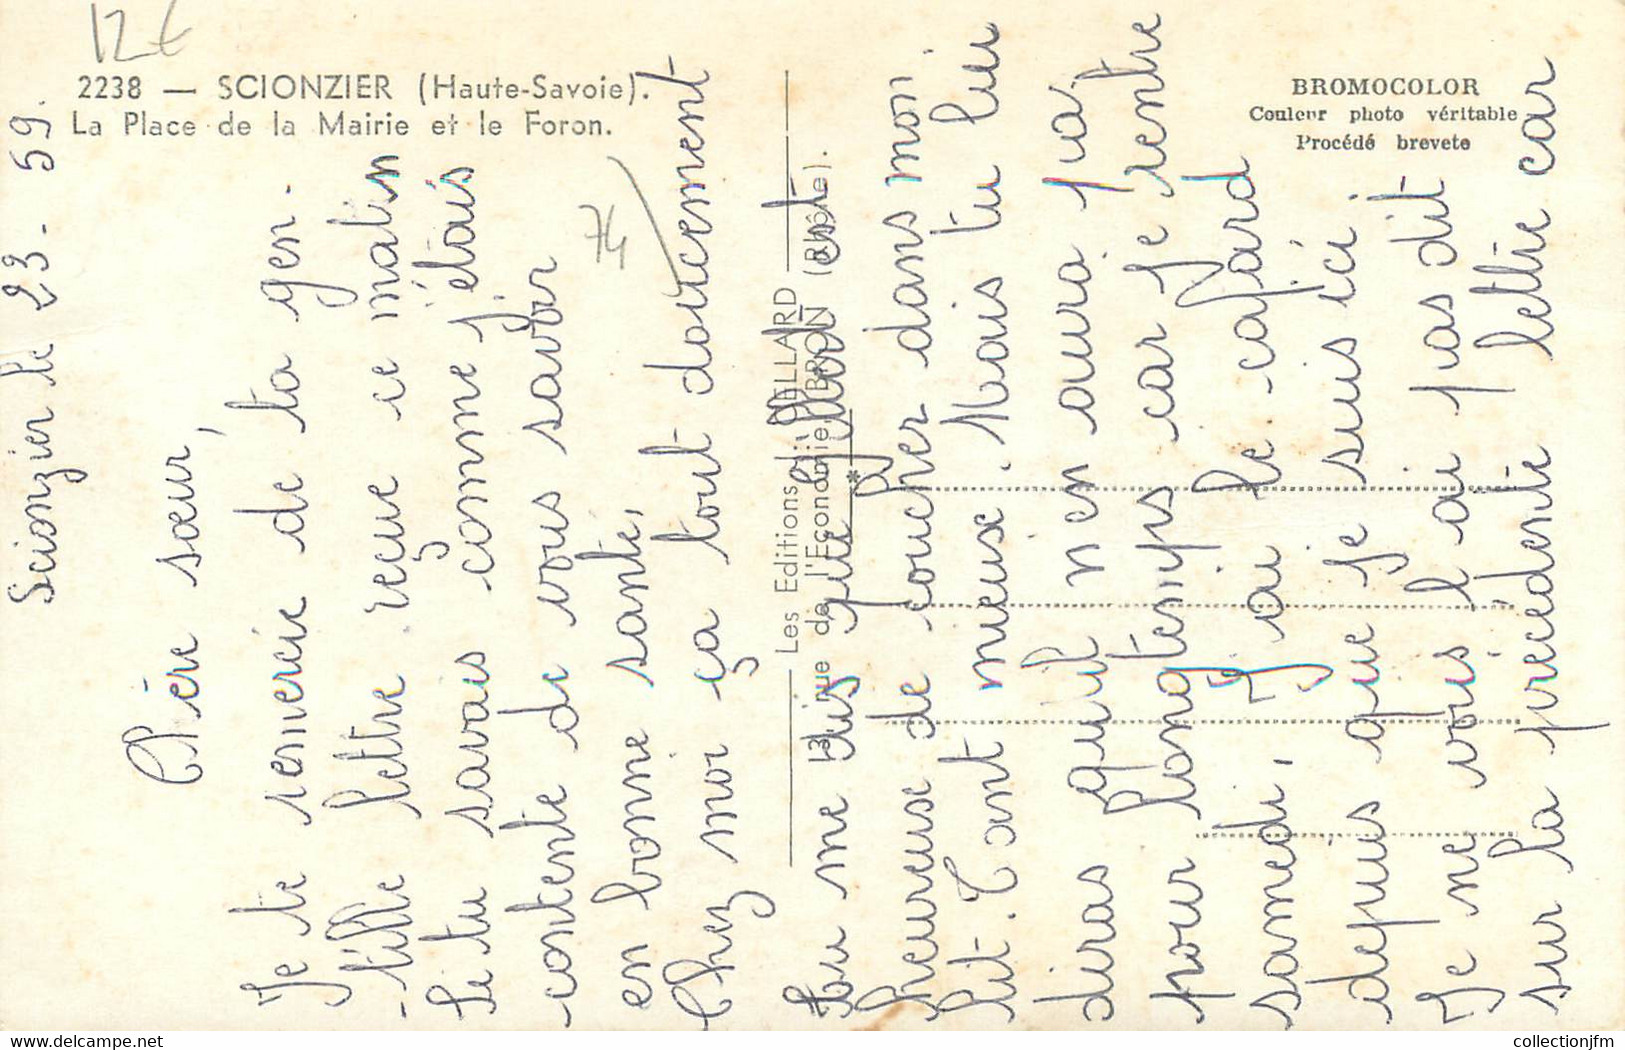 12€
2238 — SCIONZIER (Haute-Savoie).
La Place de la Mairie et le Foron.
BROMOCOLOR
Couleur photo véritable
Procédé breveté
74
Les Editions BELLARD
3, rue de l'Economie BRON (Rhône).
*
Scionzier le 23-59.
Chère sœur,
Je te remercie de ta gen-
-tille lettre reçue ce matin
Si tu savais comme j'étais
contente de vous savoir
en bonne santé,
Chez moi ça tout doucement
Tu me dis que est
heureuse de coucher dans mon
lit. Tant mieux. Mais tu lui
diras quil n'en aura pas
pour longtemps car je rentre
samedi, J'ai le cafard
depuis que je suis ici
Je ne vous l'ai pas dit
sur la précédente lettre car
collectionjfm